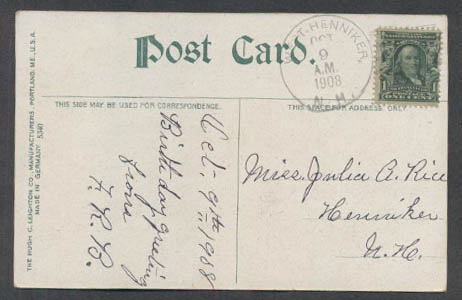 Post Card.
WEST-HENNIKER,
OCT
9
A.M.
1908
N.H.
ONE CENT
THIS SIDE MAY BE USED FOR CORRESPONDENCE.
THIS SPACE FOR ADDRESS ONLY
THE HUGH C. LEIGHTON CO., MANUFACTURERS, PORTLAND, ME., U.S.A.
MADE IN GERMANY 5340
Oct. 9th 1908
Birthday greeting
from
F. R. B.
Miss. Julia A. Rice
Henniker
N. H.